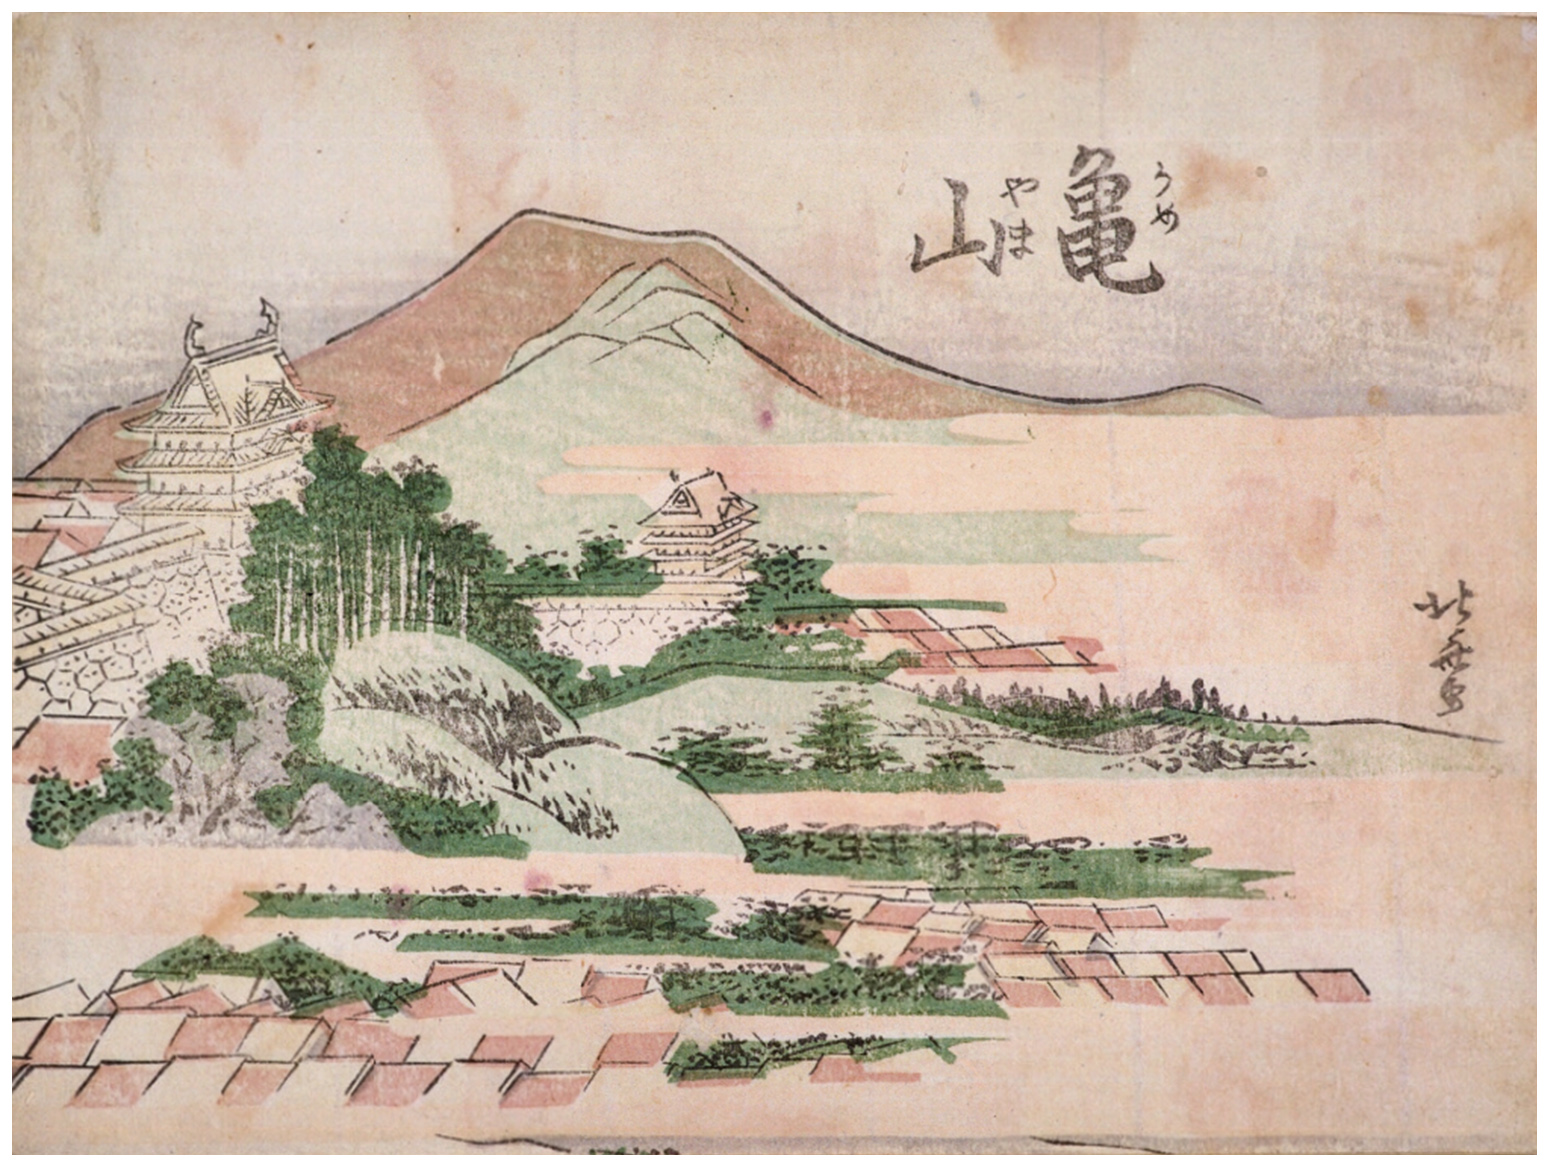 亀山
かめやま
北斎画